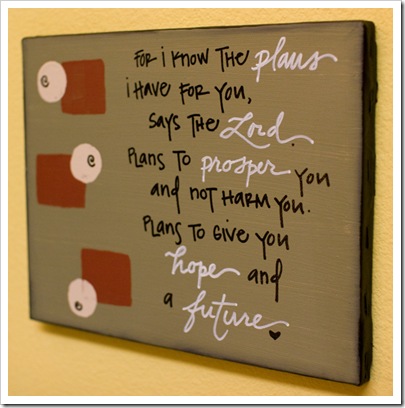 FOR i KNOW THE plans
i HAVE FOR YOU,
SAYS THE Lord.
PLANS TO prosper YOU
AND NOT HARM YOU.
PLANS TO GIVE YOU
hope AND
A future